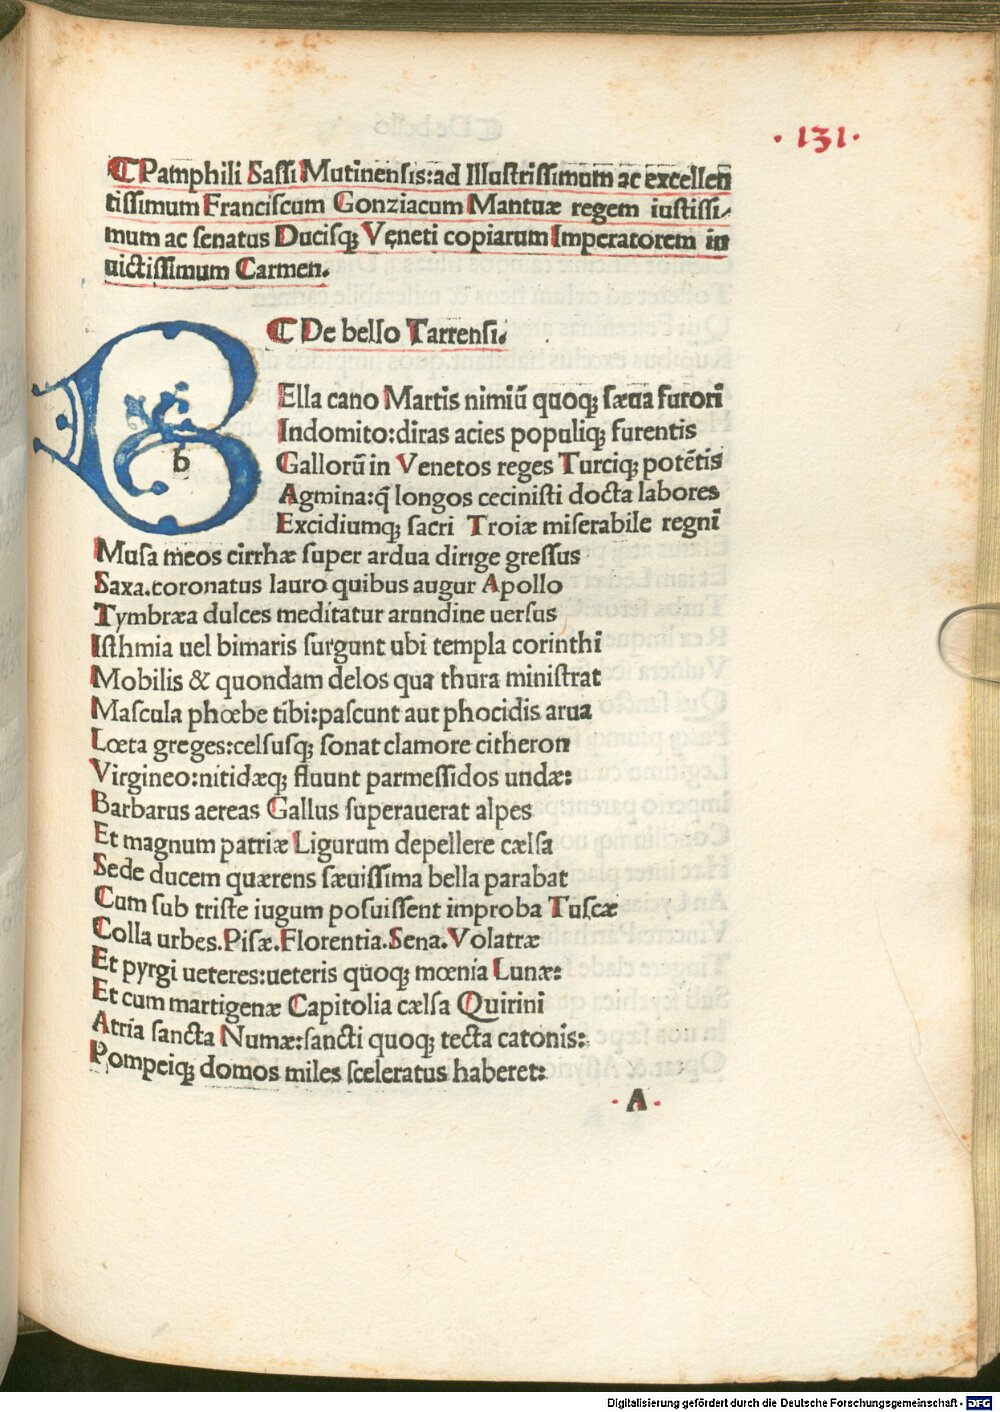 · 131 ·
⸿ Pamphili Saſſi Mutinenſis:ad Illuſtriſſimum ac excellen̄
tiſſimum Franciſcum Gonziacum Mantuæ regem iuſtiſſi⸗
mum ac ſenatus Duciſqꝫ Veneti copiarum Imperatorem in
uictiſſimum Carmen.
⸿ De bello Tarrenſi.
b
Ella cano Martis nimiū quoqꝫ ſæua furori
Indomito:diras acies populiqꝫ furentis
Gallorū in Venetos reges Turciqꝫ potētis
Agmina:q̄ longos ceciniſti docta labores
Excidiumqꝫ ſacri Troiæ miſerabile regni
Muſa meos cirrhæ ſuper ardua dirige greſſus
Saxa.coronatus lauro quibus augur Apollo
Tymbræa dulces meditatur arundine uerſus
Iſthmia uel bimaris ſurgunt ubi templa corinthi
Mobilis & quondam delos qua thura miniſtrat
Maſcula phœbe tibi:paſcunt aut phocidis arua
Lœta greges:celſuſqꝫ ſonat clamore citheron
Virgineo:nitidæqꝫ fluunt parmeſſidos undæ:
Barbarus aereas Gallus ſuperauerat alpes
Et magnum patriæ Ligurum depellere cælſa
Sede ducem quærens ſæuiſſima bella parabat
Cum ſub triſte iugum poſuiſſent improba Tuſcæ
Colla urbes.Piſæ.Florentia.Sena.Volatræ
Et pyrgi ueteres:ueteris quoqꝫ mœnia Lunæ:
Et cum martigenæ Capitolia cælſa Quirini
Atria ſancta Numæ:ſancti quoqꝫ tecta catonis:
Pompeiqꝫ domos miles ſceleratus haberet:
· A ·
Digitalisierung gefördert durch die Deutsche Forschungsgemeinschaft - DFG